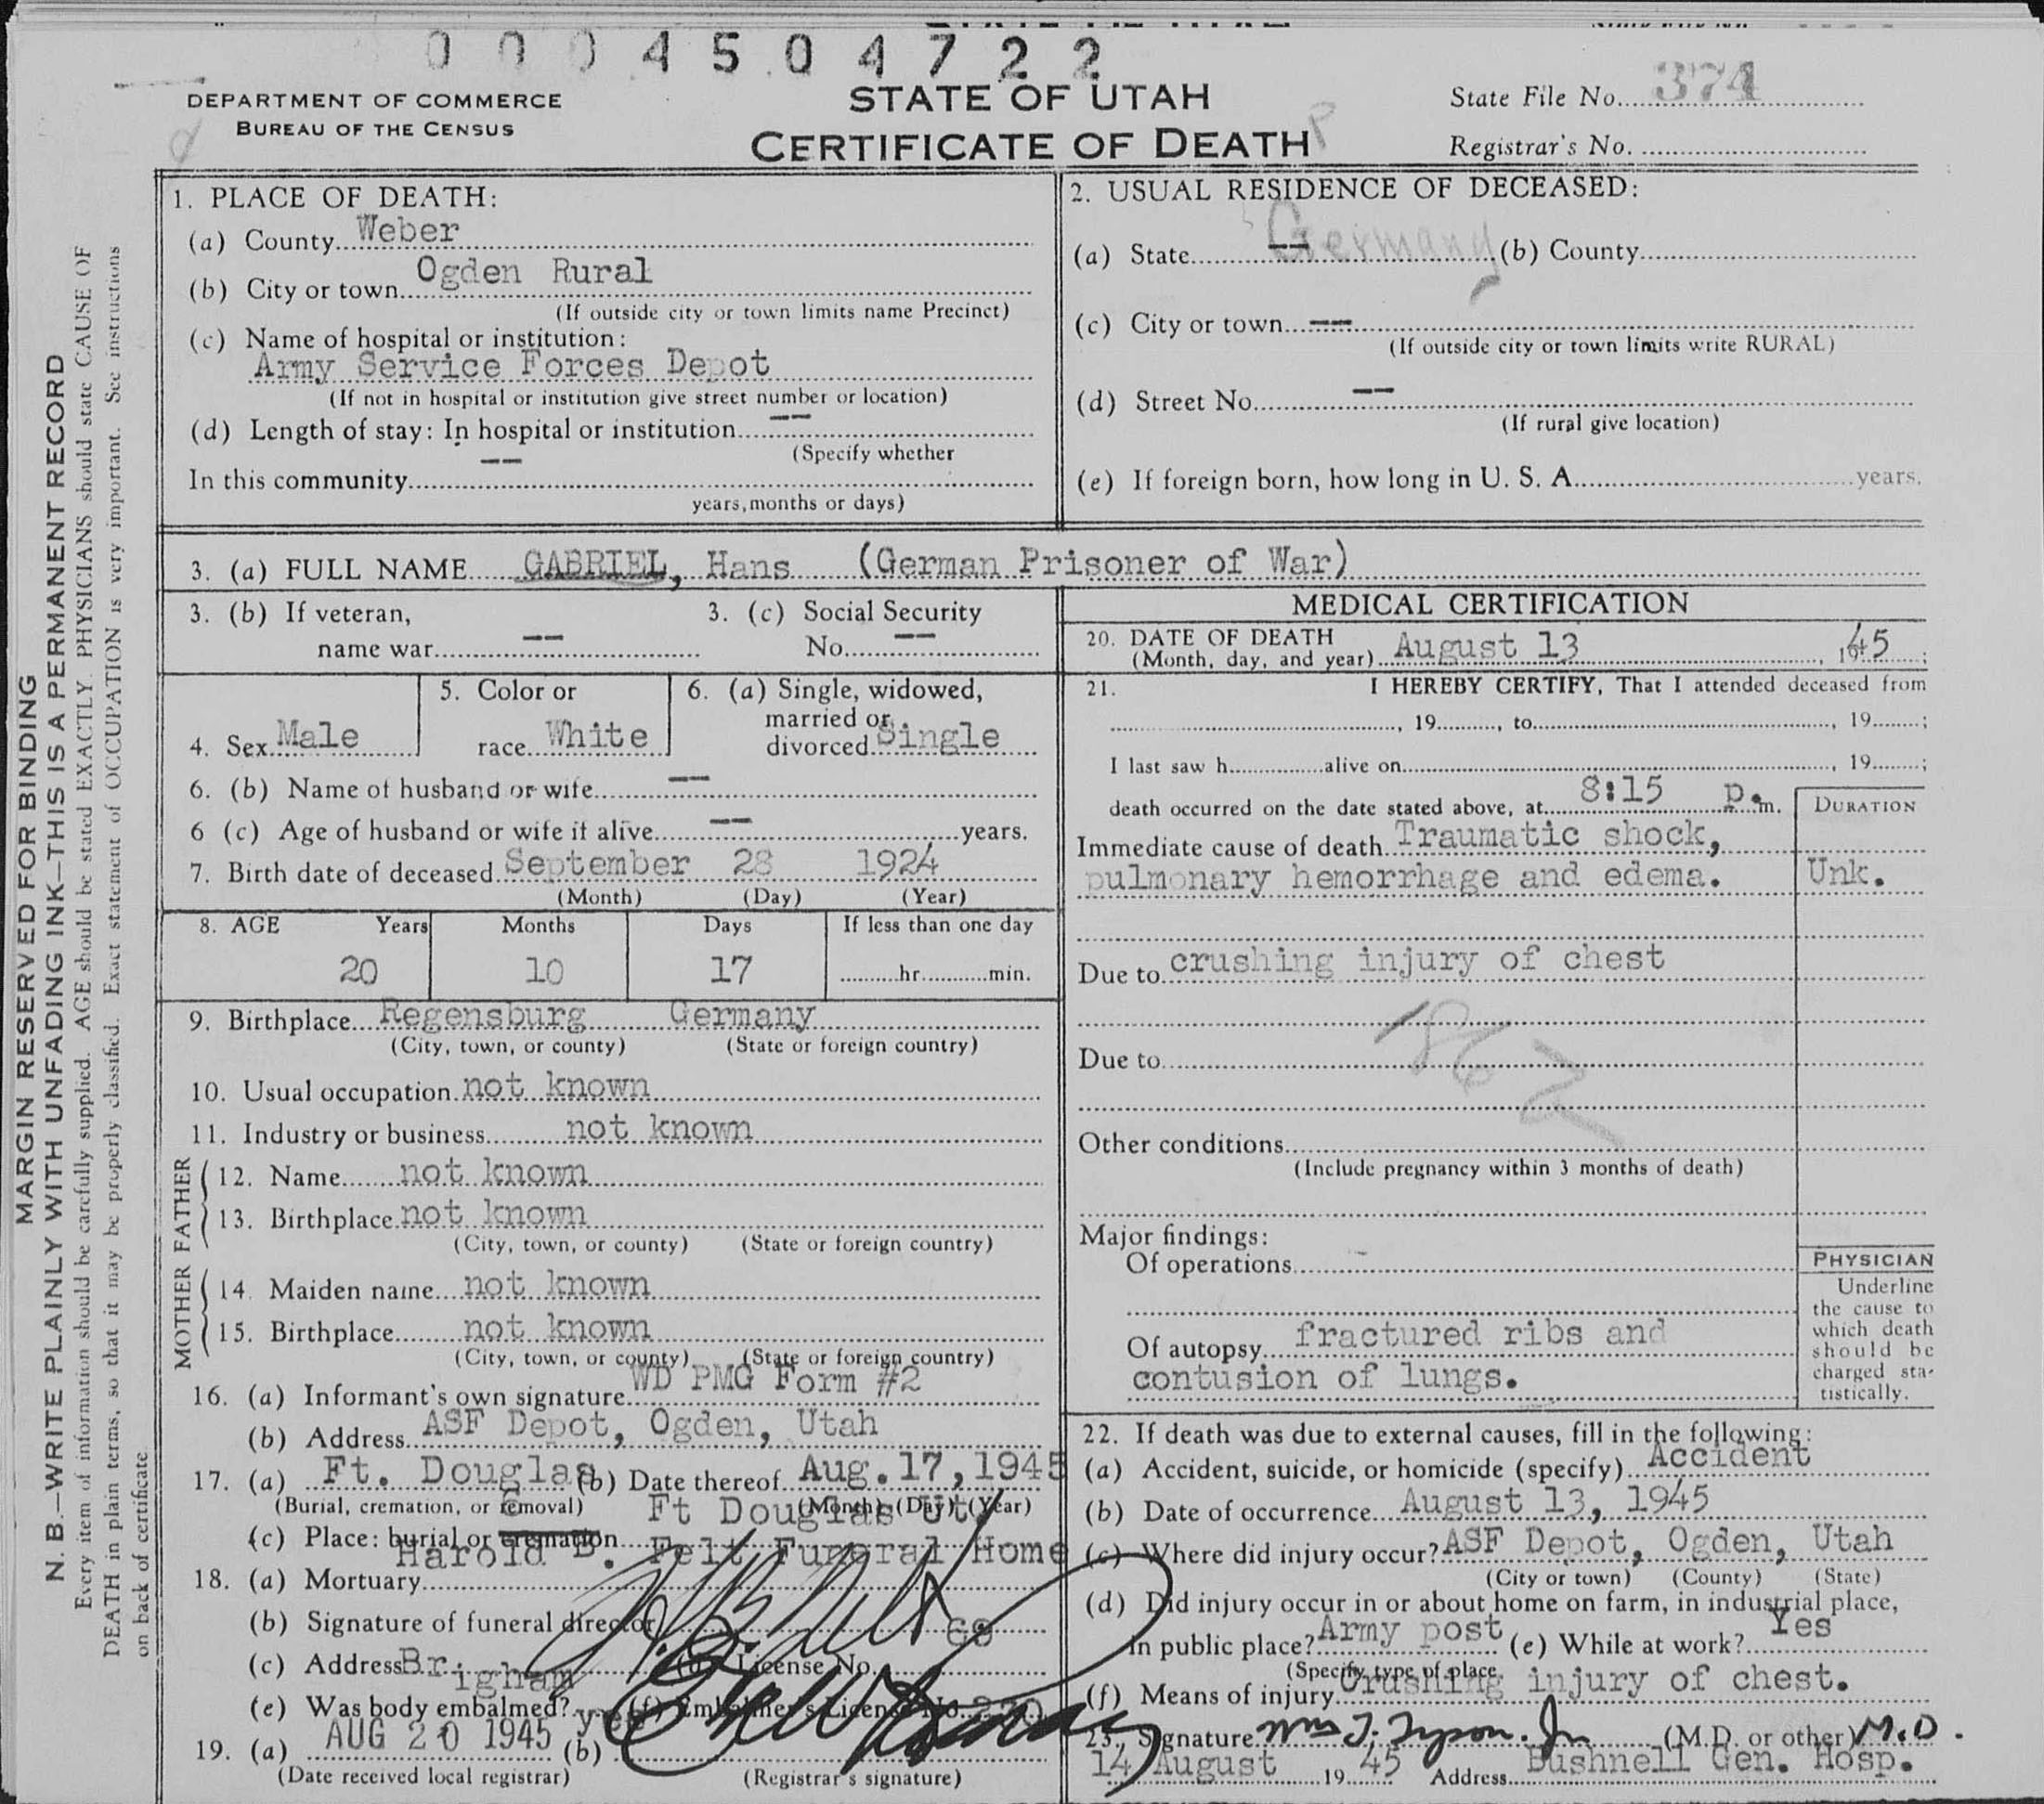 0004504722
DEPARTMENT OF COMMERCE
BUREAU OF THE CENSUS
STATE OF UTAH
CERTIFICATE OF DEATH
State File No. 374
Registrar's No.
MARGIN RESERVED FOR BINDING
N. B.—WRITE PLAINLY WITH UNFADING INK—THIS IS A PERMANENT RECORD
Every item of information should be carefully supplied. AGE should be stated EXACTLY. PHYSICIANS should state CAUSE OF
DEATH in plain terms, so that it may be properly classified. Exact statement of OCCUPATION is very important. See instructions
on back of certificate
1. PLACE OF DEATH:
(a) County Weber
(b) City or town Ogden Rural
(If outside city or town limits name Precinct)
(c) Name of hospital or institution:
Army Service Forces Depot
(If not in hospital or institution give street number or location)
(d) Length of stay: In hospital or institution --
(Specify whether
In this community --
years, months or days)
2. USUAL RESIDENCE OF DECEASED:
(a) State -- Germany (b) County
(c) City or town --
(If outside city or town limits write RURAL)
(d) Street No. --
(If rural give location)
(e) If foreign born, how long in U. S. A. years.
3. (a) FULL NAME GABRIEL, Hans (German Prisoner of War)
3. (b) If veteran,
name war --
3. (c) Social Security
No. --
4. Sex Male
5. Color or
race White
6. (a) Single, widowed,
married or
divorced Single
6. (b) Name of husband or wife --
6 (c) Age of husband or wife if alive -- years.
7. Birth date of deceased September 28 1924
(Month) (Day) (Year)
8. AGE Years Months Days If less than one day
20 10 17 hr. min.
9. Birthplace Regensburg Germany
(City, town, or county) (State or foreign country)
10. Usual occupation not known
11. Industry or business not known
FATHER
12. Name not known
13. Birthplace not known
(City, town, or county) (State or foreign country)
MOTHER
14. Maiden name not known
15. Birthplace not known
(City, town, or county) (State or foreign country)
16. (a) Informant's own signature WD PMG Form #2
(b) Address ASF Depot, Ogden, Utah
17. (a) Ft. Douglas (b) Date thereof Aug. 17, 1945
(Burial, cremation, or removal) (Month) (Day) (Year)
(c) Place: burial or cremation Ft Douglas Ut
18. (a) Mortuary Harold B. Felt Funeral Home
(b) Signature of funeral director
(c) Address Brigham (d) License No. 68
(e) Was body embalmed? yes (f) Embalmer's License No. 270
19. (a) AUG 20 1945 (b)
(Date received local registrar) (Registrar's signature)
MEDICAL CERTIFICATION
20. DATE OF DEATH
(Month, day, and year) August 13, 1945;
21. I HEREBY CERTIFY, That I attended deceased from
, 19, to, 19;
I last saw h alive on, 19;
death occurred on the date stated above, at 8:15 p. m.
DURATION
Immediate cause of death Traumatic shock,
pulmonary hemorrhage and edema. Unk.
Due to crushing injury of chest
Due to
Other conditions
(Include pregnancy within 3 months of death)
Major findings:
Of operations
Of autopsy fractured ribs and
contusion of lungs.
PHYSICIAN
Underline
the cause to
which death
should be
charged sta-
tistically.
22. If death was due to external causes, fill in the following:
(a) Accident, suicide, or homicide (specify) Accident
(b) Date of occurrence August 13, 1945
(c) Where did injury occur? ASF Depot, Ogden, Utah
(City or town) (County) (State)
(d) Did injury occur in or about home on farm, in industrial place,
in public place? Army post (e) While at work? Yes
(Specify type of place
(f) Means of injury Crushing injury of chest.
23. Signature Wm T. Tyson Jr (M.D. or other) M.D.
14 August 19 45 Address Bushnell Gen. Hosp.